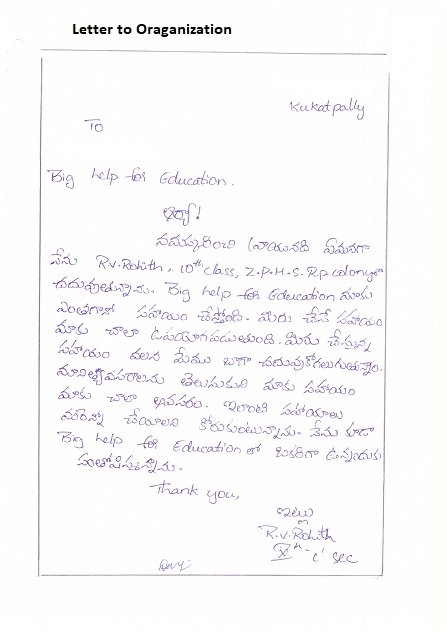 Letter to Oraganization
Kukatpally
To
Big help for Education.
ఆర్యా!
నమస్కరించి వ్రాయునది ఏమనగా
నేను R.V.Rohith, 10th class, Z.P.H.S. R.p colony లో
చదువుతున్నాను. Big help for Education మాకు
ఎంతగానో సహాయం చేస్తోంది. మీరు చేసే సహాయం
మాకు చాలా ఉపయోగపడుతుంది. మీరు చేస్తున్న
సహాయం వలన మేము బాగా చదువుకోగలుగుతున్నాం.
తెలుసుకుని మాకు సహాయం
మాకు చాలా అవసరం. ఇలాంటి సహాయాలు
మరెన్నో చేయాలని కోరుకుంటున్నాను. నేను కూడా
Big help for Education లో ఒకరిగా ఉన్నందుకు
సంతోషిస్తున్నాను.
Thank you,
ఇట్లు
R.V.Rohith
Xth - 'c' sec